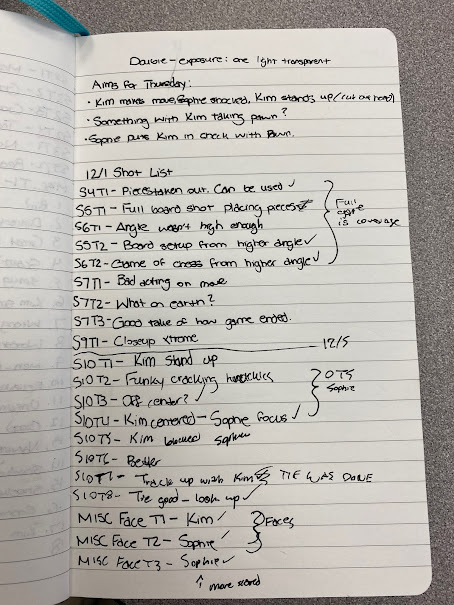 Double-exposure: one light transparent
Aims for Thursday:
· Kim makes move, Sophie shocked, Kim stands up/(cut on hand)
· Something with Kim taking pawn?
· Sophie puts Kim in check with Pawn.
12/1 Shot List
S4T1- Pieces taken out. Can be used ✓
S5T1- Full board shot placing pieces
S6T1- Angle wasn't high enough
S5T2- Board setup from higher angle ✓
S6T2- Game of chess from higher angle ✓
Full game is coverage
S7T1- Bad acting on move
S7T2- What on earth?
S7T3- Good take of how game ended.
S9T1- Closeup xtreme
12/5
S10T1- Kim stand up
S10T2- Funky cracking
S10T3- Off center? ✓
S10T4- Kim centered- Sophie focus ✓
OTS Sophie
S10T5- Kim blocked Sophie
S10T6- Better
S10T7- Track up with Kim TIE WAS DONE
S10T8- Tie good- look up ✓
MISC Face T1- Kim ✓
MISC Face T2- Sophie ✓
MISC Face T3- Sophie ✓
Faces
↑ more scared